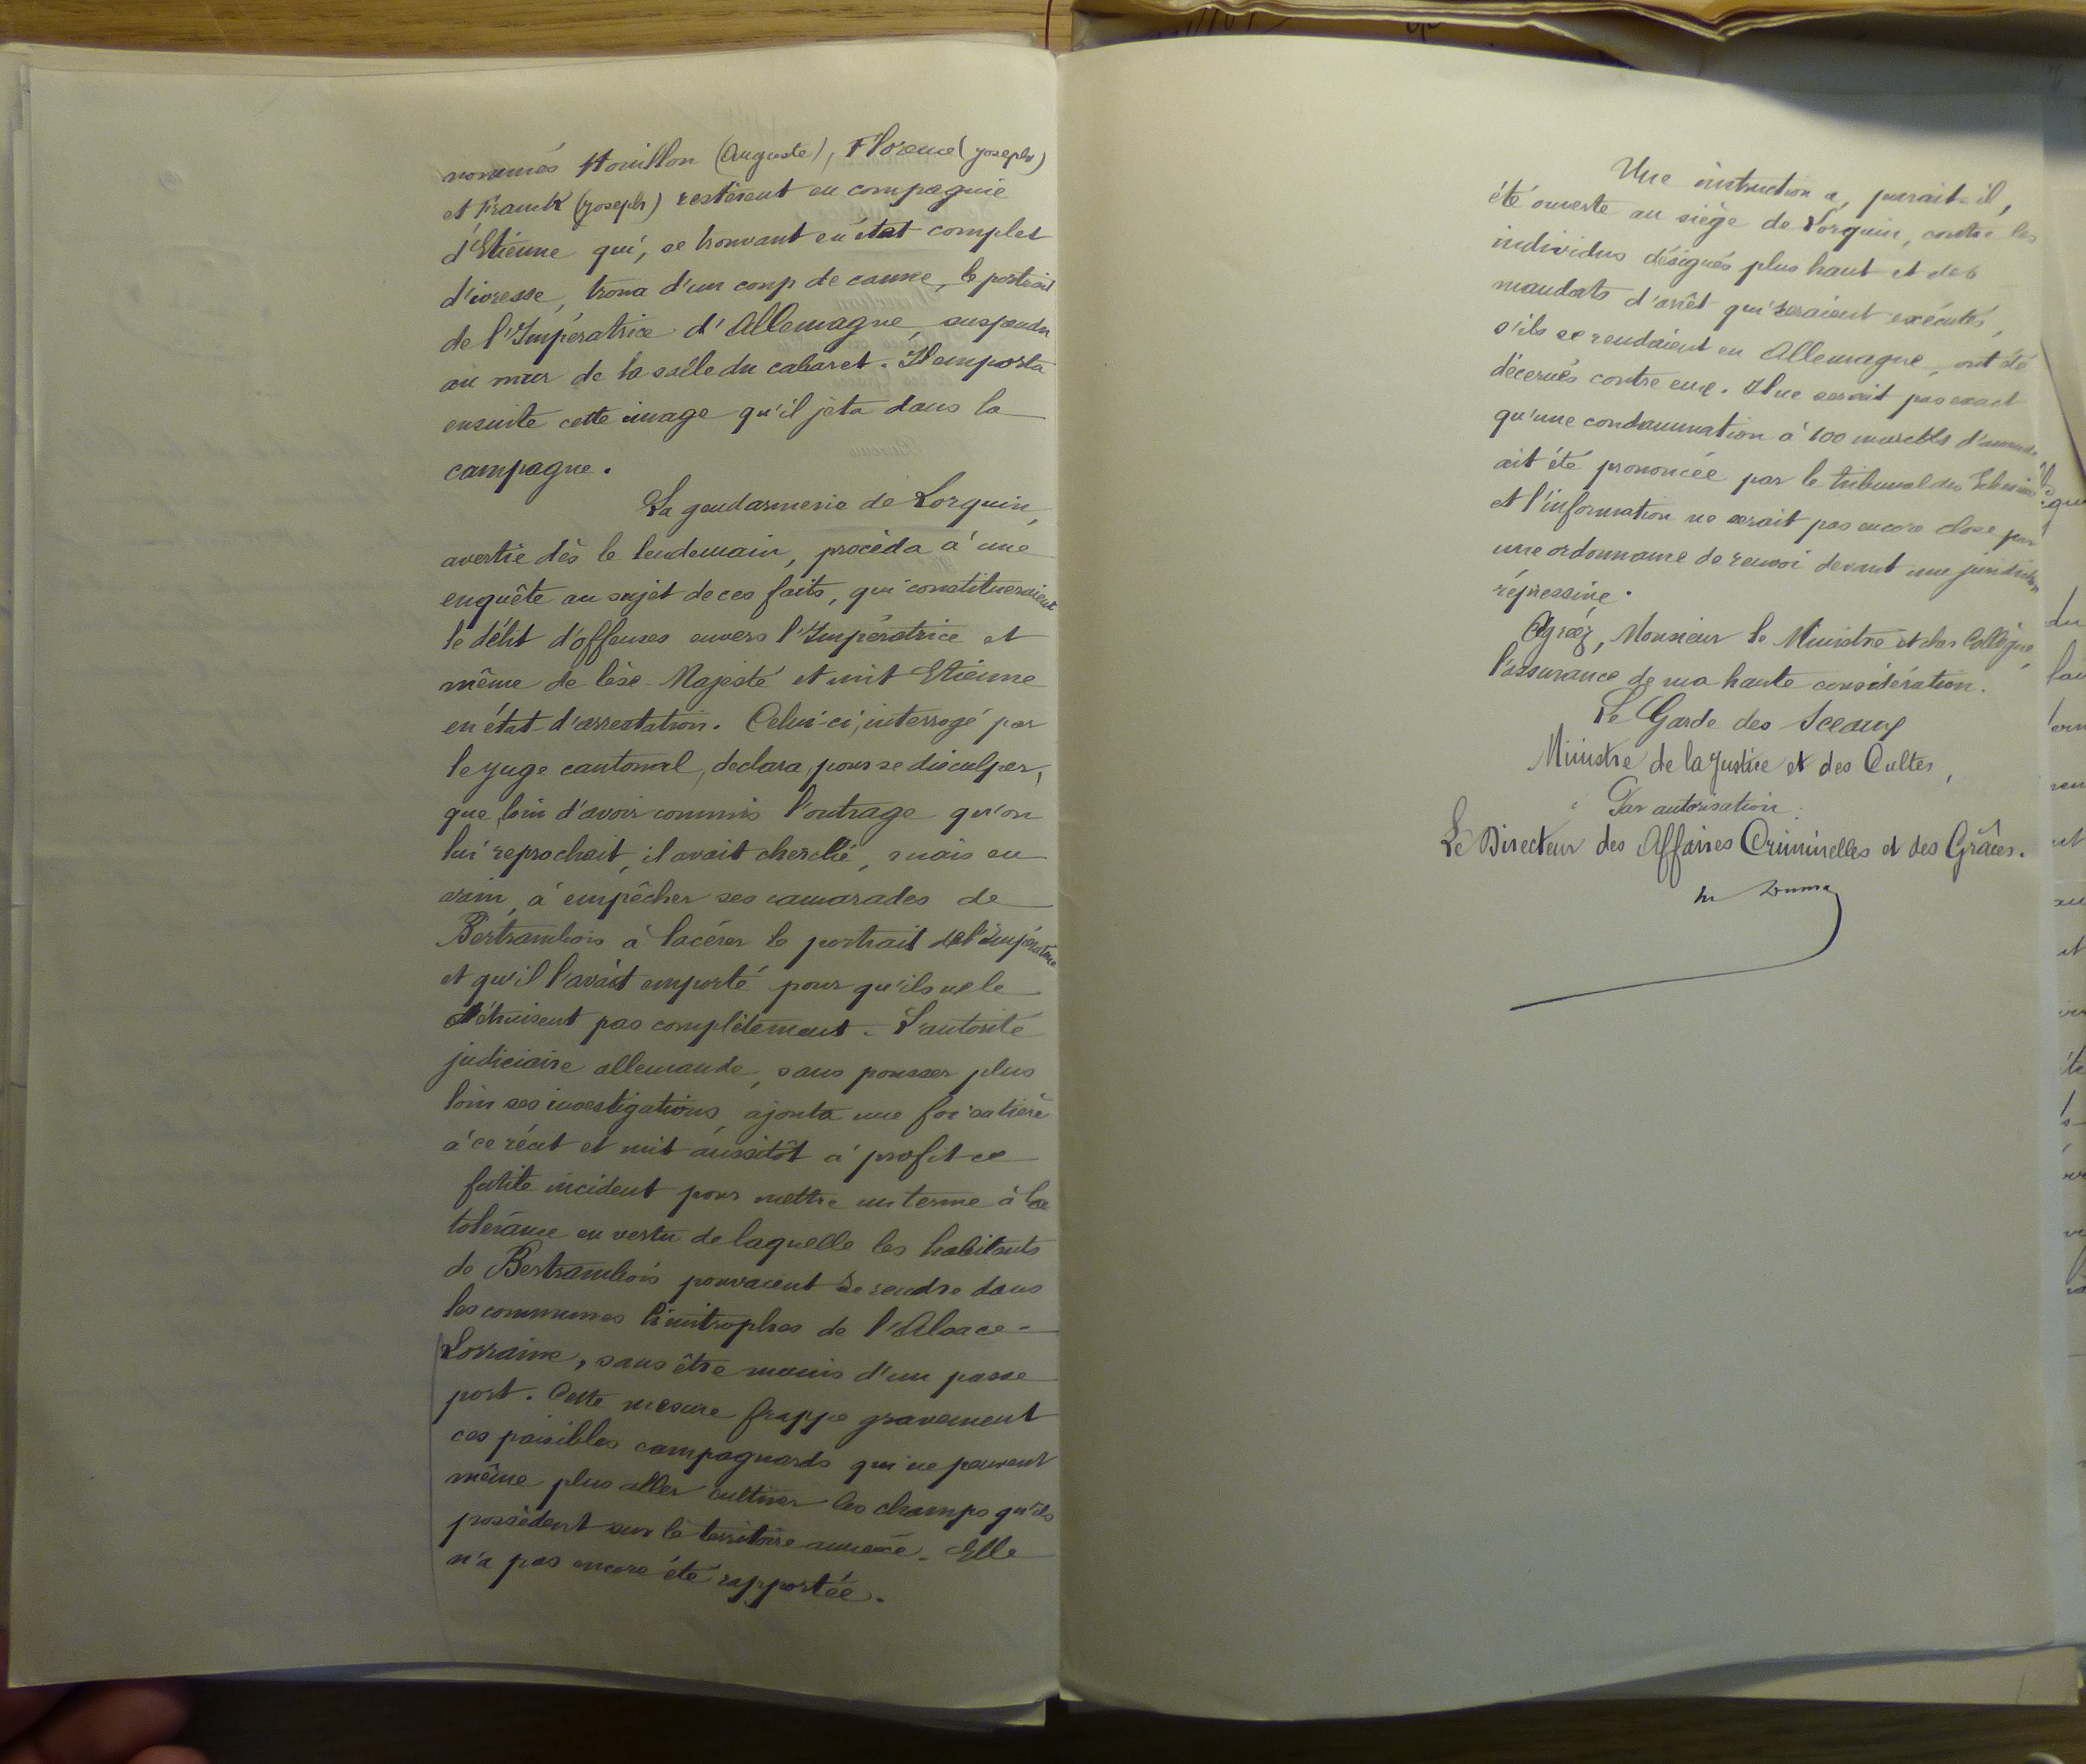 nommés Houillon (Auguste), Florence (Joseph)
et Franck (Joseph) restèrent en compagnie
d'Etienne qui, se trouvant en état complet
d'ivresse, troua d'un coup de canne, le portrait
de l'Impératrice d'Allemagne, suspendu
au mur de la salle du cabaret. Il emporta
ensuite cette image qu'il jeta dans la
campagne.
La gendarmerie de Lorquin,
avertie dès le lendemain, procéda à une
enquête au sujet de ces faits, qui constitueraient
le délit d'offenses envers l'Impératrice et
même de lèse-Majesté et mit Etienne
en état d'arrestation. Celui-ci, interrogé par
le juge cantonal, déclara, pour se disculper,
que, loin d'avoir commis l'outrage qu'on
lui reprochait, il avait cherché, mais en
vain, à empêcher ses camarades de
Bertrambois à lacérer le portrait de l'Impératrice
et qu'il l'avait emporté pour qu'ils ne le
détruisent pas complètement. L'autorité
judiciaire allemande, sans pousser plus
loin ses investigations, ajouta une foi entière
à ce récit et mit aussitôt à profit ce
futile incident pour mettre un terme à la
tolérance en vertu de laquelle les habitants
de Bertrambois pouvaient se rendre dans
les communes limitrophes de l'Alsace-
Lorraine, sans être munis d'un passe
port. Cette mesure frappe gravement
ces paisibles campagnards qui ne peuvent
même plus aller cultiver les champs qu'ils
possèdent sur le territoire annexé. Elle
n'a pas encore été rapportée.
Une instruction a, paraît-il,
été ouverte au siège de Lorquin, contre les
individus désignés plus haut et des
mandats d'arrêt qui seraient exécutés,
s'ils se rendaient en Allemagne, ont été
décernés contre eux. Il ne serait pas exact
qu'une condamnation à 100 marcks d'amende
ait été prononcée par le tribunal des
et l'information ne serait pas encore close par
une ordonnance de renvoi devant une juridiction
répressive.
Agréez, Monsieur le Ministre et cher Collègue,
l'assurance de ma haute considération.
Le Garde des Sceaux
Ministre de la Justice et des Cultes,
Par autorisation :
Le Directeur des Affaires Criminelles et des Grâces.